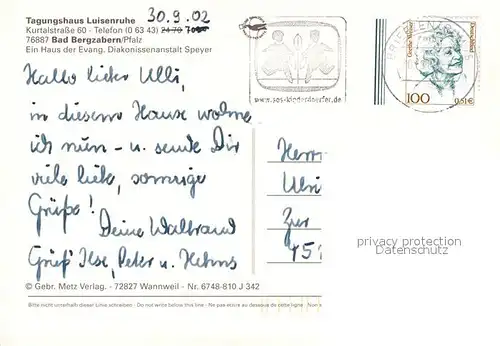 Tagungshaus Luisenruhe
30.9.02
Kurtalstraße 60 - Telefon (0 63 43)
76887 Bad Bergzabern/Pfalz
Ein Haus der Evang. Diakonissenanstalt Speyer
Hallo lieber Ulli,
in diesem Hause wohne
ich nun - u. sende Dir
viele liebe, sonnige
Grüße!
Deine Waltraud
Grüß Ilse, Peter u.
© Gebr. Metz Verlag. - 72827 Wannweil - Nr. 6748-810 J 342
Bitte nicht unterhalb dieser Linie schreiben - Do not write below this line - Ne pas écrire au dessous de cette ligne - Non
www.sos-kinderdoerfer.de
BRIEFZENTRUM
Grethe Weiser
Deutschland
100
0,51€
Herrn
Ulri
Zur
451
privacy protection
Datenschutz